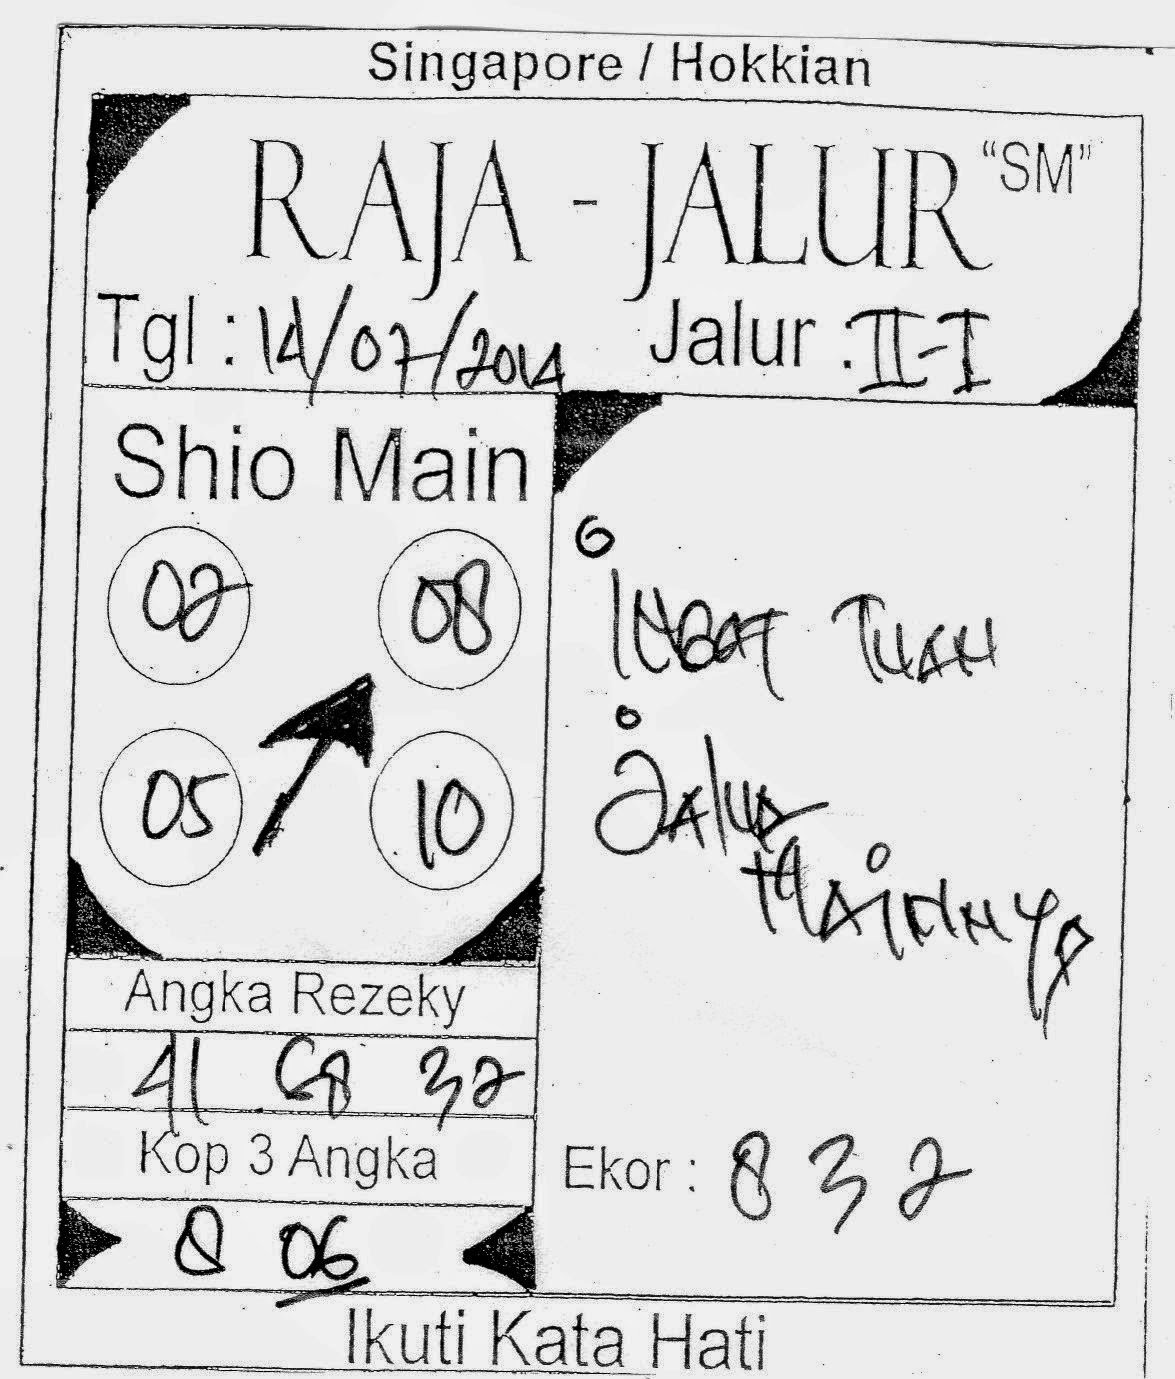 Singapore / Hokkian
RAJA - JALUR "SM"
Tgl : 14/07/2014 Jalur : II-I
Shio Main
02 08
05 10
INGAT TUAN
JALUR
MAINNYA
Angka Rezeky
41 68 32
Kop 3 Angka
8 06
Ekor : 8 3 2
Ikuti Kata Hati